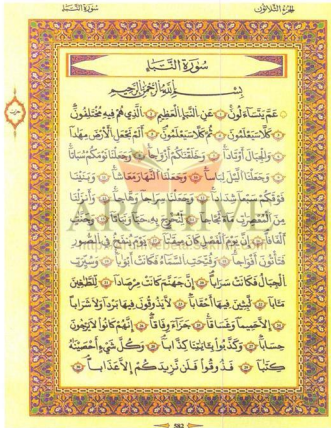 سُورَةُ النَّبَإِ
الجزء الثلاثون
سُورَةُ النَّبَإِ
بِسْمِ اللَّهِ الرَّحْمَٰنِ الرَّحِيمِ
عَمَّ يَتَسَاءَلُونَ ۝ عَنِ النَّبَإِ الْعَظِيمِ ۝ الَّذِي هُمْ فِيهِ مُخْتَلِفُونَ ۝
كَلَّا سَيَعْلَمُونَ ۝ ثُمَّ كَلَّا سَيَعْلَمُونَ ۝ أَلَمْ نَجْعَلِ الْأَرْضَ مِهَادًا
۝ وَالْجِبَالَ أَوْتَادًا ۝ وَخَلَقْنَاكُمْ أَزْوَاجًا ۝ وَجَعَلْنَا نَوْمَكُمْ سُبَاتًا
۝ وَجَعَلْنَا اللَّيْلَ لِبَاسًا ۝ وَجَعَلْنَا النَّهَارَ مَعَاشًا ۝ وَبَنَيْنَا
فَوْقَكُمْ سَبْعًا شِدَادًا ۝ وَجَعَلْنَا سِرَاجًا وَهَّاجًا ۝ وَأَنزَلْنَا
مِنَ الْمُعْصِرَاتِ مَاءً ثَجَّاجًا ۝ لِّنُخْرِجَ بِهِ حَبًّا وَنَبَاتًا ۝ وَجَنَّاتٍ
أَلْفَافًا ۝ إِنَّ يَوْمَ الْفَصْلِ كَانَ مِيقَاتًا ۝ يَوْمَ يُنفَخُ فِي الصُّورِ
فَتَأْتُونَ أَفْوَاجًا ۝ وَفُتِحَتِ السَّمَاءُ فَكَانَتْ أَبْوَابًا ۝ وَسُيِّرَتِ
الْجِبَالُ فَكَانَتْ سَرَابًا ۝ إِنَّ جَهَنَّمَ كَانَتْ مِرْصَادًا ۝ لِّلطَّاغِينَ
مَآبًا ۝ لَّابِثِينَ فِيهَا أَحْقَابًا ۝ لَّا يَذُوقُونَ فِيهَا بَرْدًا وَلَا شَرَابًا
۝ إِلَّا حَمِيمًا وَغَسَّاقًا ۝ جَزَاءً وِفَاقًا ۝ إِنَّهُمْ كَانُوا لَا يَرْجُونَ
حِسَابًا ۝ وَكَذَّبُوا بِآيَاتِنَا كِذَّابًا ۝ وَكُلَّ شَيْءٍ أَحْصَيْنَاهُ
كِتَابًا ۝ فَذُوقُوا فَلَن نَّزِيدَكُمْ إِلَّا عَذَابًا ۝
ARCHIVE
582